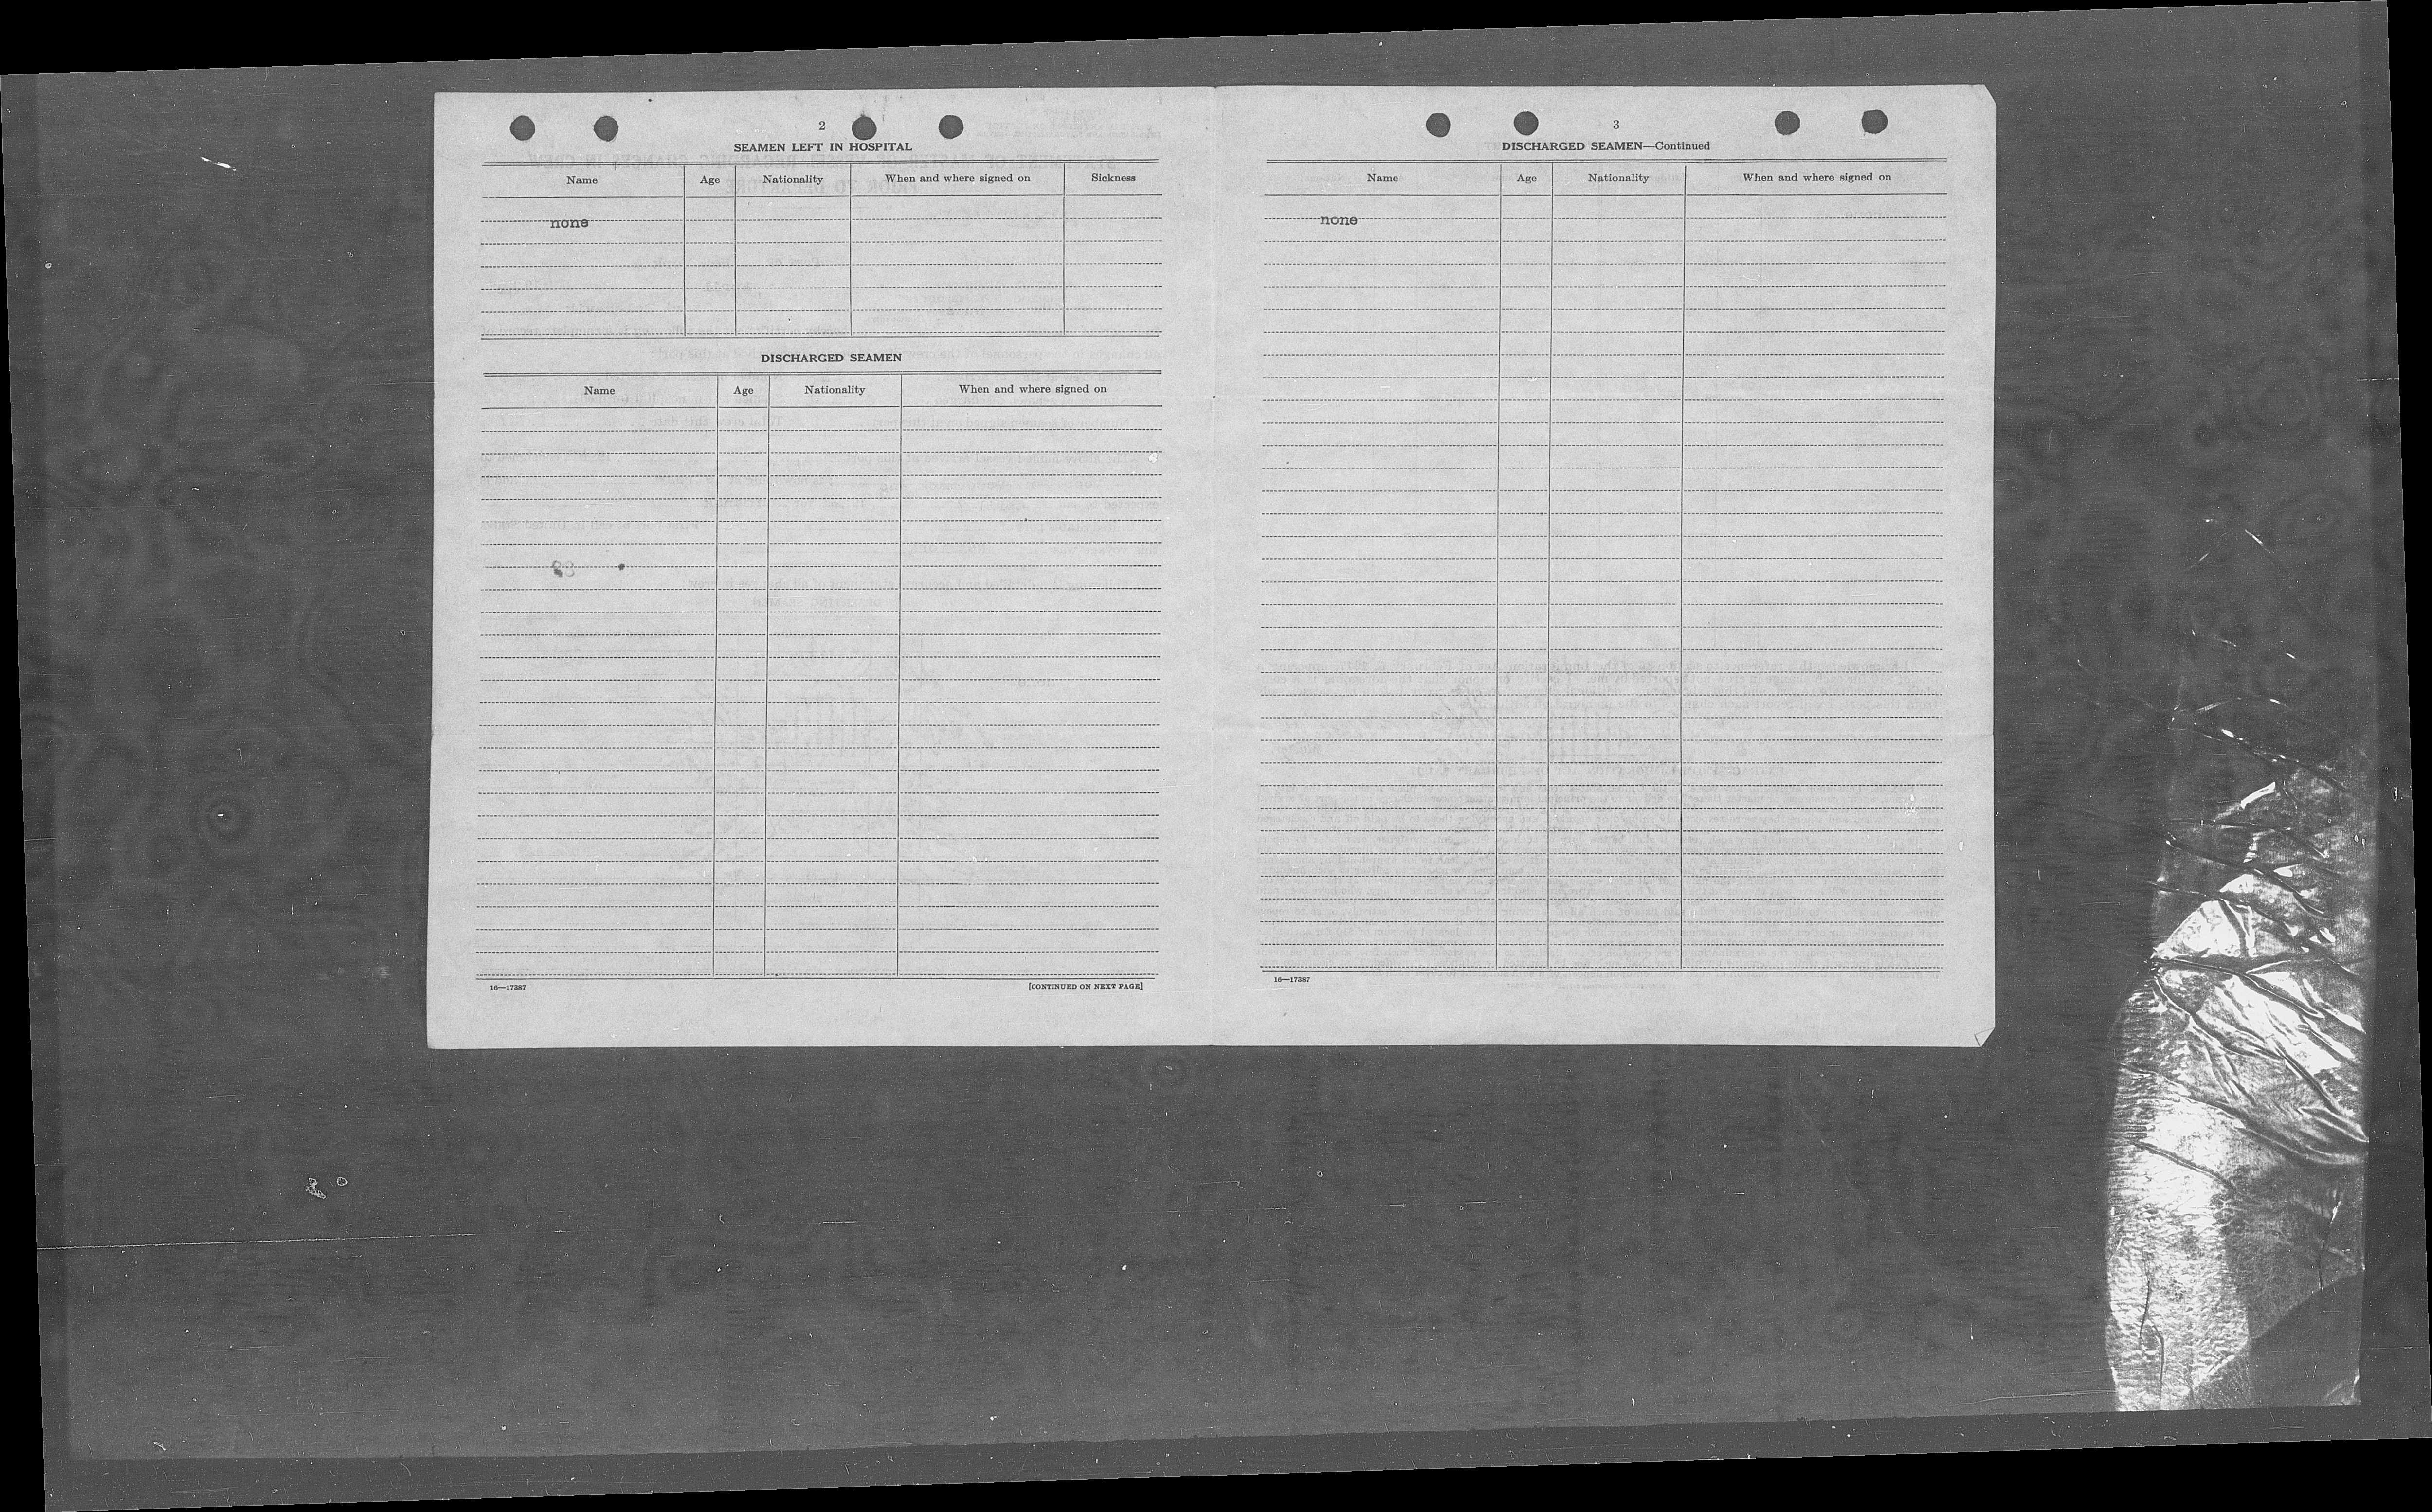 2
SEAMEN LEFT IN HOSPITAL
Name Age Nationality When and where signed on Sickness
none
DISCHARGED SEAMEN
Name Age Nationality When and where signed on
16—17387 [CONTINUED ON NEXT PAGE]
3
DISCHARGED SEAMEN—Continued
Name Age Nationality When and where signed on
none
16—17387